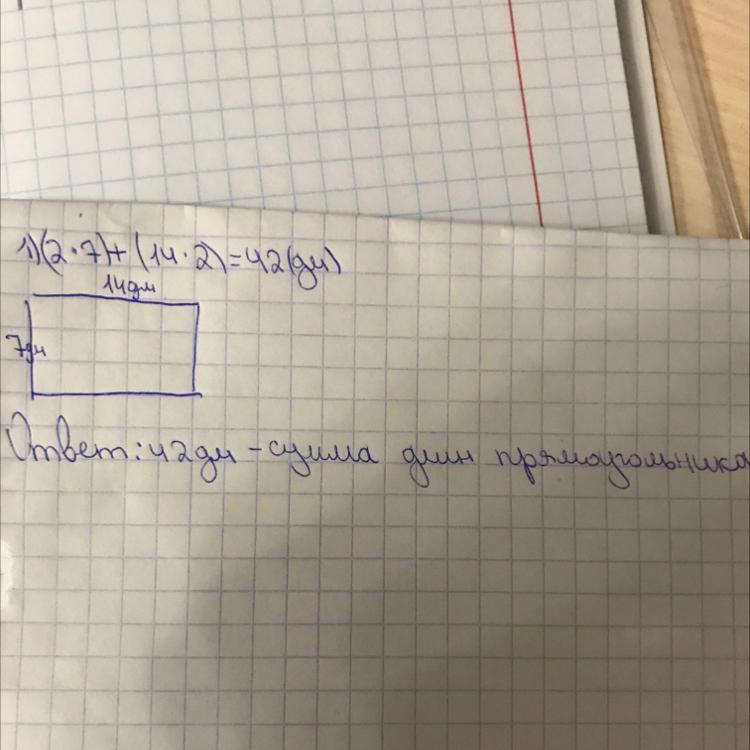 1)(2·7)+(14·2)=42(дм)
14дм
7дм
Ответ: 42дм - сумма длин прямоугольника